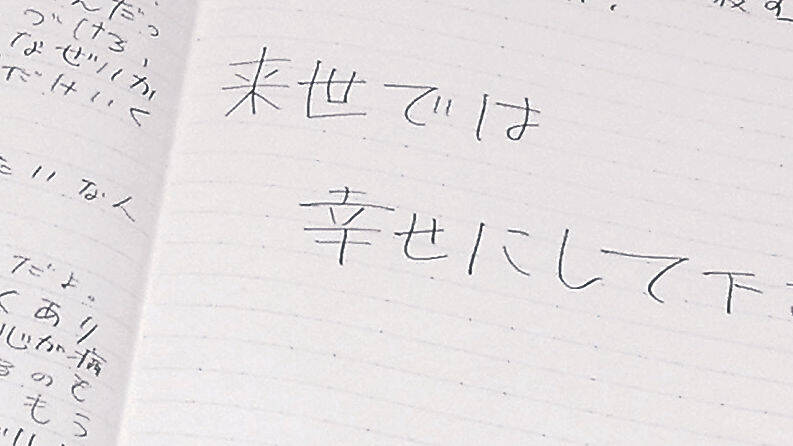 づけろ、
なぜいか
だけいく
たいな人
だよ。
くあり
心が病
るのそ
もう
来世では
幸せにして下